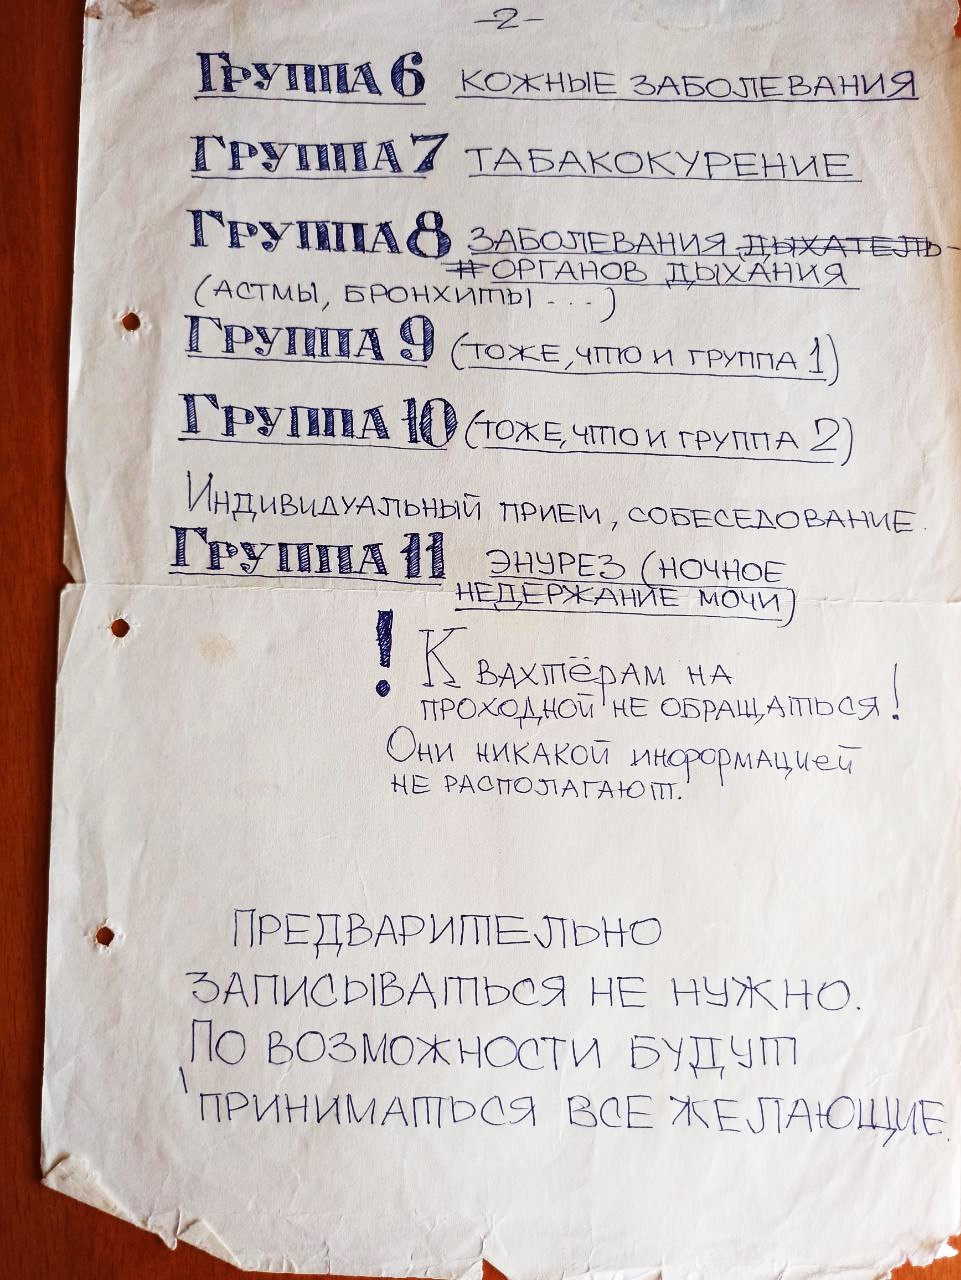 -2-
Группа 6 КОЖНЫЕ ЗАБОЛЕВАНИЯ
Группа 7 ТАБАКОКУРЕНИЕ
Группа 8 ЗАБОЛЕВАНИЯ ДЫХАТЕЛЬ-
ОРГАНОВ ДЫХАНИЯ
(АСТМЫ, БРОНХИТЫ . . .)
Группа 9 (ТОЖЕ, ЧТО И ГРУППА 1)
Группа 10 (ТОЖЕ, ЧТО И ГРУППА 2)
ИНДИВИДУАЛЬНЫЙ ПРИЕМ, СОБЕСЕДОВАНИЕ.
Группа 11 ЭНУРЕЗ (НОЧНОЕ
НЕДЕРЖАНИЕ МОЧИ)
! К ВАХТЁРАМ НА
ПРОХОДНОЙ НЕ ОБРАЩАТЬСЯ!
ОНИ НИКАКОЙ ИНФОРМАЦИЕЙ
НЕ РАСПОЛАГАЮТ.
ПРЕДВАРИТЕЛЬНО
ЗАПИСЫВАТЬСЯ НЕ НУЖНО.
ПО ВОЗМОЖНОСТИ БУДУТ
ПРИНИМАТЬСЯ ВСЕ ЖЕЛАЮЩИЕ.